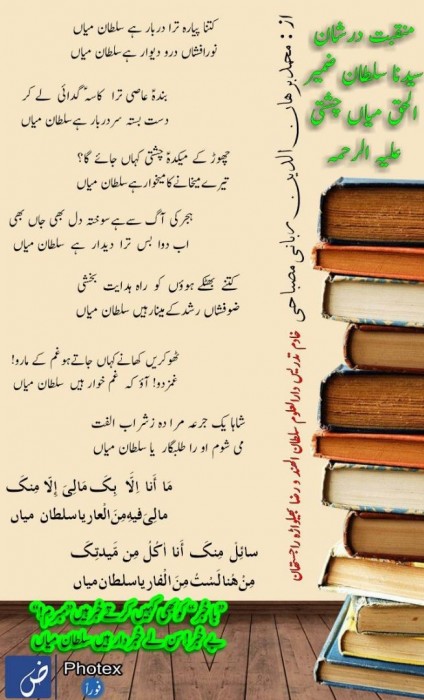 منقبت در شان
سیدنا سلطان ضمیر
الحق میاں چشتی
علیہ الرحمہ
از : محمد برھان الدین ربانی مصباحی
خادم تدریس دارالعلوم سلطان الھند و رضا بھیلواڑہ راجستھان
کتنا پیارہ ترا دربار ہے سلطان میاں
نور افشاں در و دیوار ہے سلطان میاں
بندۂ عاصی ترا کاسۂ گدائی لے کر
دست بستہ سر دربار ہے سلطان میاں
چھوڑ کے میکدۂ چشتی کہاں جائے گا؟
تیرے میخانے کا میخوار ہے سلطان میاں
ہجر کی آگ سے ہے سوختہ دل بھی جاں بھی
اب دوا بس ترا دیدار ہے سلطان میاں
کتنے بھٹکے ہوؤں کو راہ ہدایت بخشی
ضوفشاں رشد کے مینار ہیں سلطان میاں
ٹھوکریں کھانے کہاں جاتے ہو غم کے مارو!
غمزدو! آؤ کہ غم خوار ہیں سلطان میاں
شاہا یک جرعہ مرا دہ ز شراب الفت
می شوم او را طلبگار یا سلطان میاں
مَا أنا اِلَّا بِکَ مَالِیَ إِلَّا مِنکَ
مالی فیهِ مِنَ الْعار یا سلطان میاں
سائِلٌ مِنکَ أنا أکُلُ مِن مَّیدتِکَ
مِنْ هُنا لَسْتُ مِنَ الْفار یا سلطان میاں
بے خبر اس لے خبردار ہیں سلطان میاں
Photex
فوراً
ض